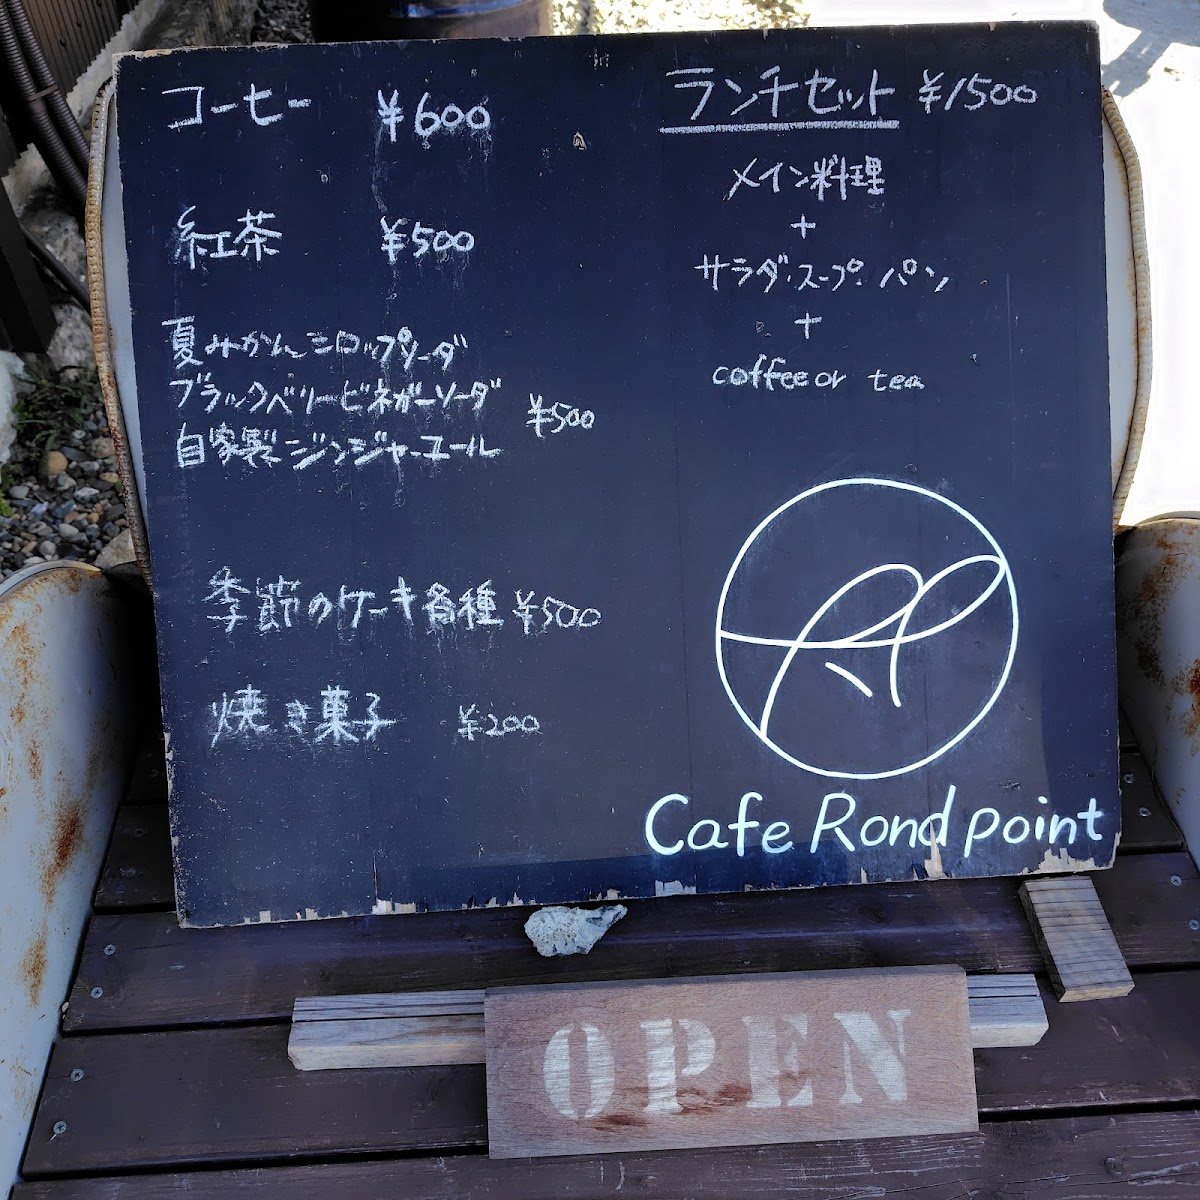 コーヒー ¥600
紅茶 ¥500
夏みかんシロップソーダ
ブラックベリービネガーソーダ
自家製ジンジャーエール
¥500
季節のケーキ各種 ¥500
焼き菓子 ¥200
ランチセット ¥1500
メイン料理
+
サラダ・スープ・パン
+
coffee or tea
Cafe Rond point
OPEN